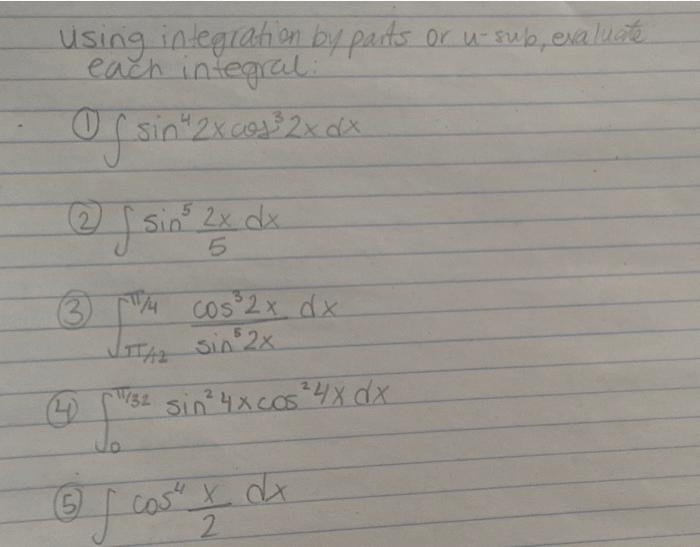 using integration by parts or u-sub, evaluate
each integral:
① ∫ sin⁴2xcos³2xdx
② ∫ sin⁵ 2x/5 dx
③ ∫_{π/12}^{π/4} cos³2x/sin⁵2x dx
④ ∫_0^{π/32} sin²4xcos²4xdx
⑤ ∫ cos⁴ x/2 dx